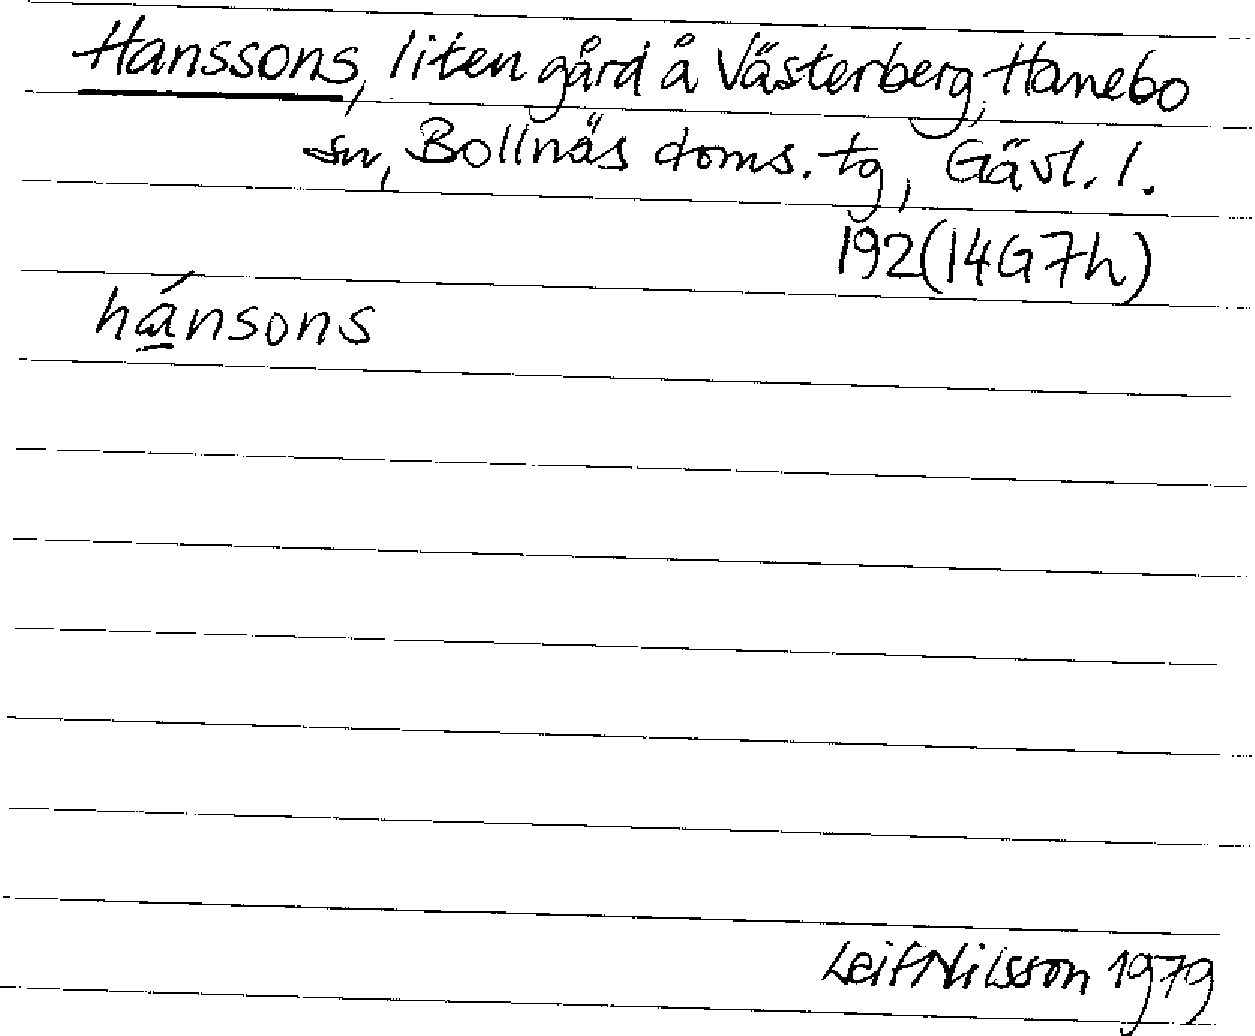 Hanssons, liten gård å Västerberg, Hanebo
sn, Bollnäs doms. tg, Gävl. l.
192(14G7h)
hánsons
Leif Nilsson 1979